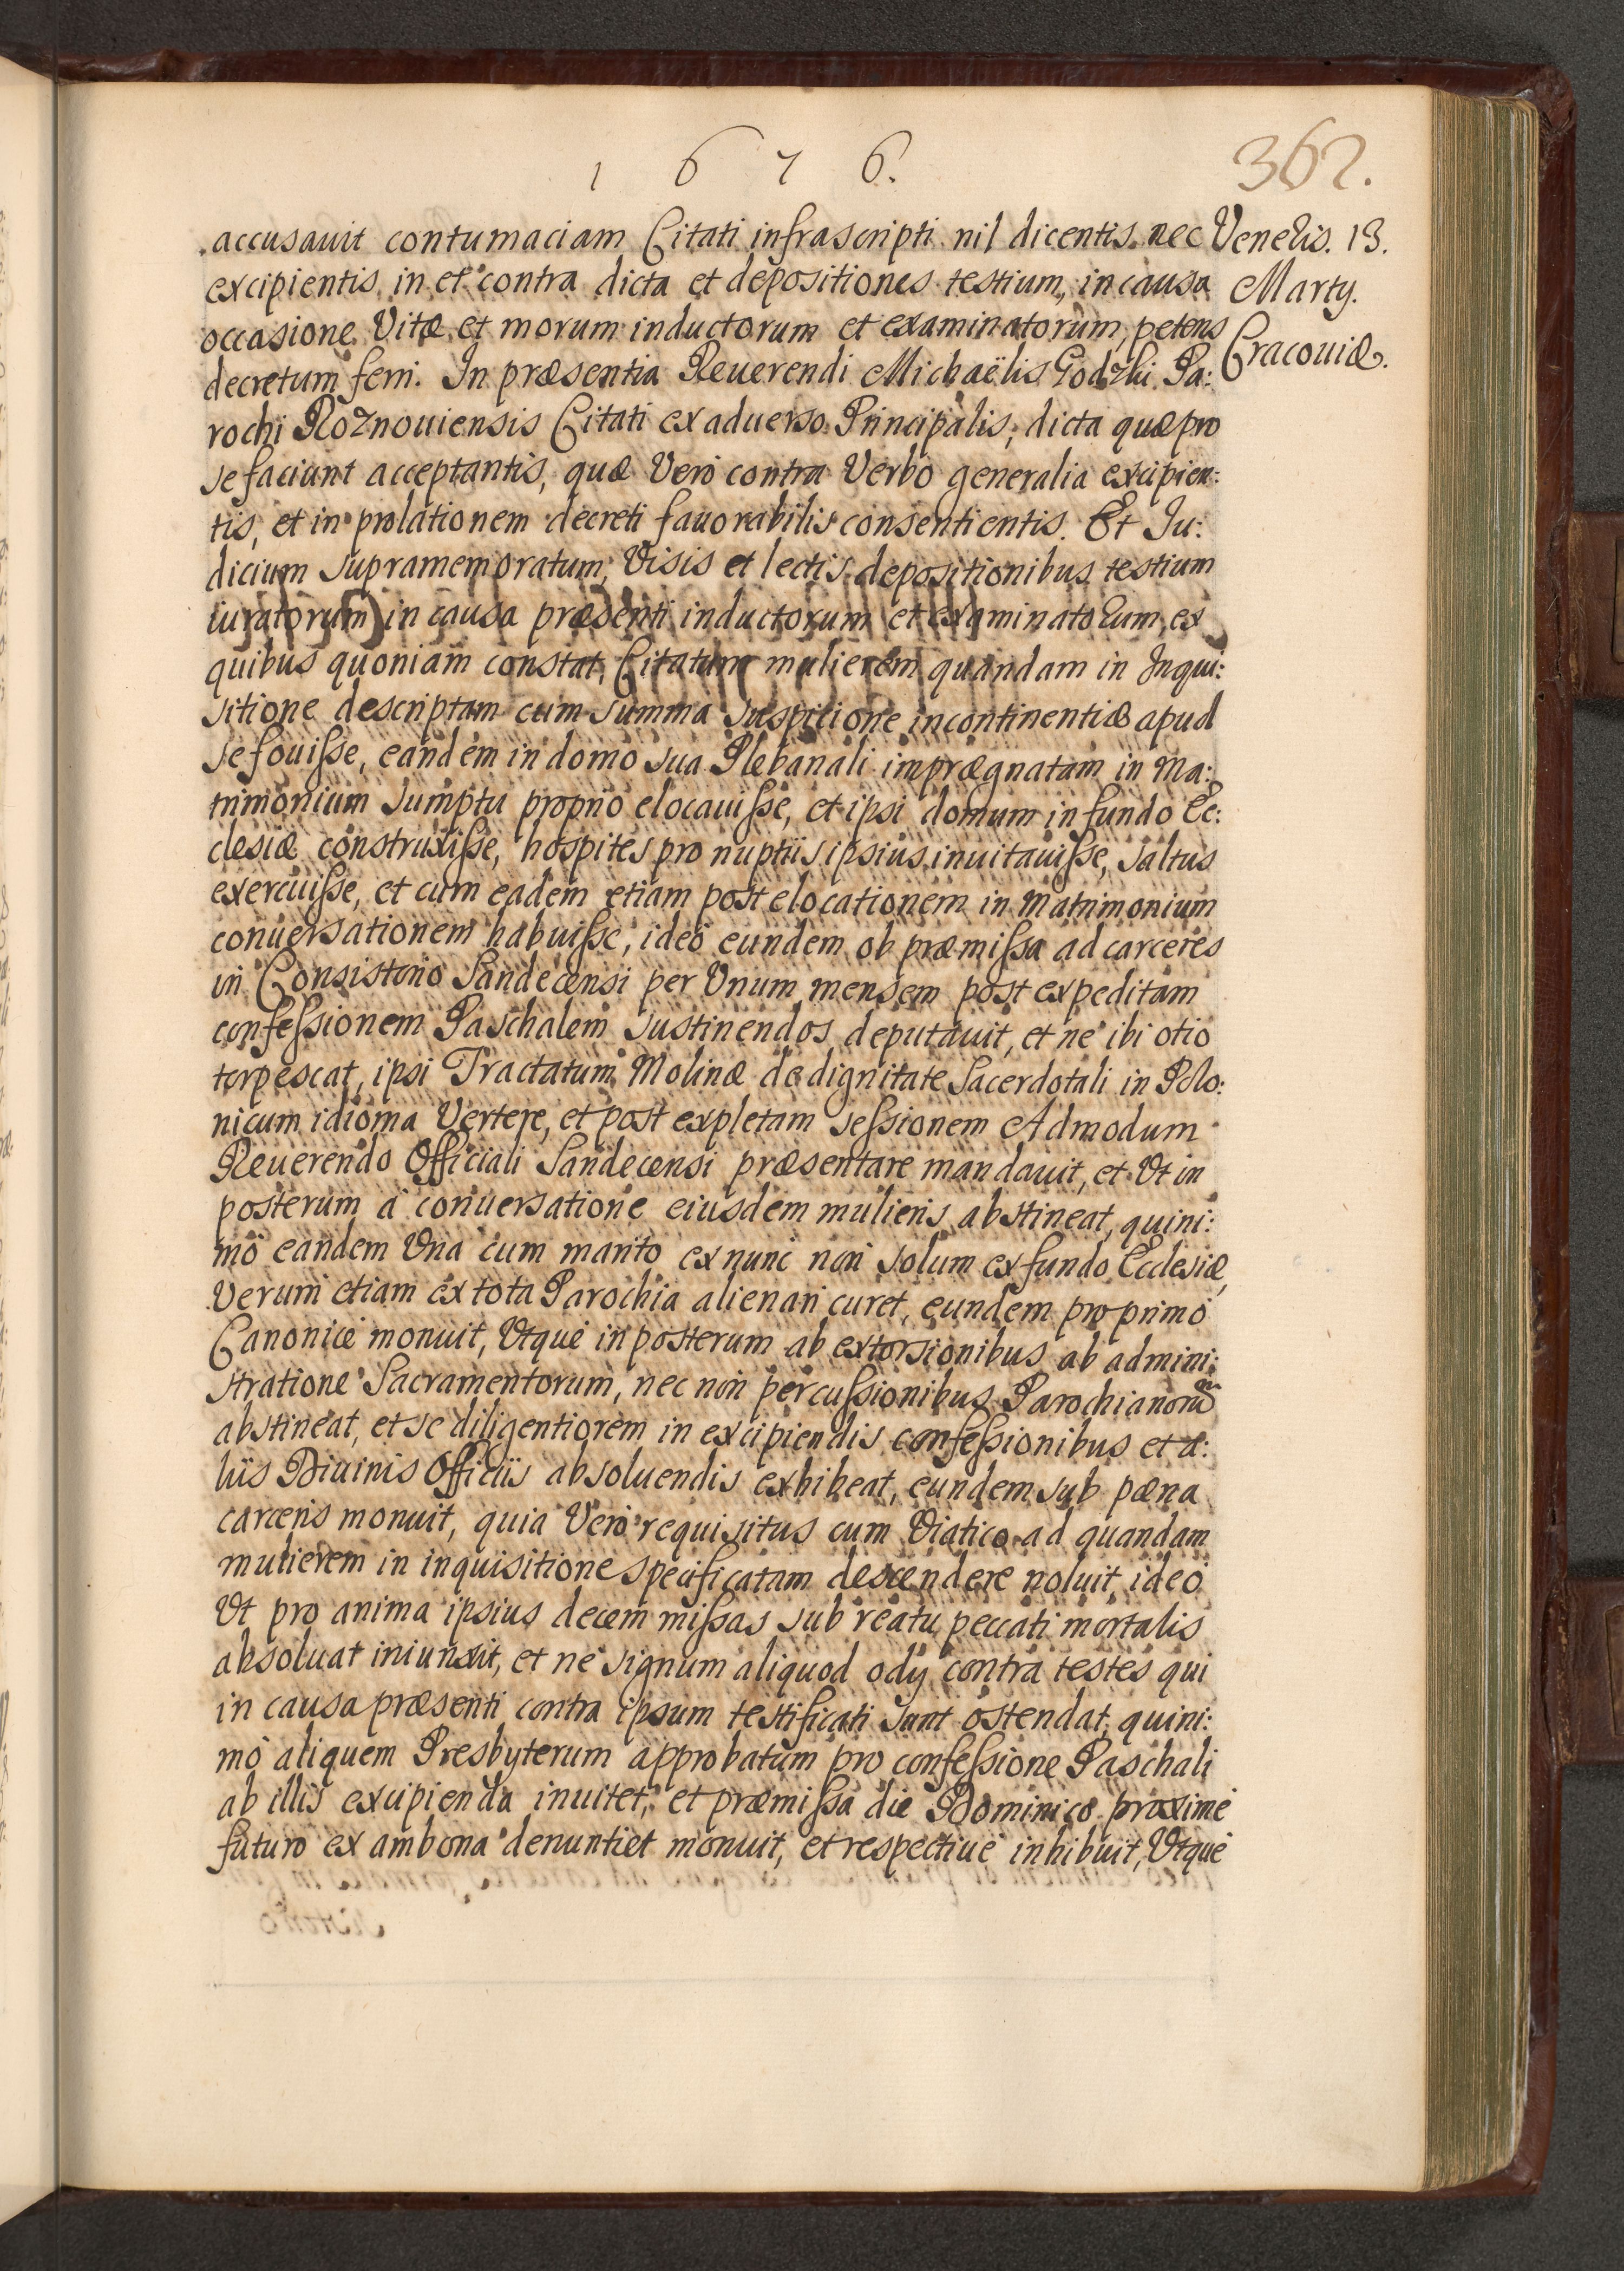 1676.
362.
accusauit contumaciam Citati infrascripti nil dicentis nec
excipientis in et contra dicta et depositiones testium, in causa
occasione Vitæ et morum inductorum et examinatorum, petens
decretum ferri. In præsentia Reuerendi Michaëlis Godzki Pa:
rochi Roznouiensis Citati ex aduerso Principalis, dicta quæ pro
se faciunt acceptantis, quæ Verò contra Verbo generalia excipien:
tis, et in prolationem decreti fauorabilis consentientis. Et Iu:
dicium supramemoratum, Visis et lectis depositionibus testium
iuratorum in causa præsenti inductorum et examinatorum, ex
quibus quoniam constat, Citatum mulierem quandam in Inqui:
sitione descriptam cum summa suspicione incontinentiæ apud
se fouisse, eandem in domo sua Plebanali imprægnatam in Ma:
trimonium sumptu proprio elocauisse, et ipsi domum in fundo Ec:
clesiæ construxisse, hospites pro nuptiis ipsius inuitauisse, saltus
exercuisse, et cum eadem etiam post elocationem in Matrimonium
conuersationem habuisse, ideò eundem ob præmissa ad carceres
in Consistorio Sandecensi per Vnum mensem post expeditam
confessionem Paschalem sustinendos deputauit, et ne ibi otio
torpescat, ipsi Tractatum Molinæ de dignitate Sacerdotali in Polo:
nicum idioma Vertere, et post expletam sessionem Admodum
Reuerendo Officiali Sandecensi præsentare mandauit, et Vt in
posterum à conuersatione eiusdem mulieris abstineat, quini:
mò eandem Vna cum marito ex nunc non solum ex fundo Ecclesiæ,
Verum etiam ex tota Parochia alienari curet, eundem pro primo
Canonicè monuit, Vtque in posterum ab extorsionibus ab admini:
stratione Sacramentorum, nec non percussionibus Parochianorũ
abstineat, et se diligentiorem in excipiendis confessionibus et a:
liis Diuinis Officiis absoluendis exhibeat, eundem sub pœna
carceris monuit, quia Verò requisitus cum Viatico ad quandam
mulierem in inquisitione specificatam descendere noluit, ideò
Vt pro anima ipsius decem missas sub reatu peccati mortalis
absoluat iniunxit, et ne signum aliquod odij contra testes qui
in causa præsenti contra ipsum testificati sunt ostendat, quini:
mò aliquem Presbyterum approbatum pro confessione Paschali
ab illis excipienda inuitet, et præmissa die Dominico proximè
futuro ex ambona denuntiet monuit, et respectiuè inhibuit, Vtque
Veneris. 13.
Martij.
Cracouiæ.